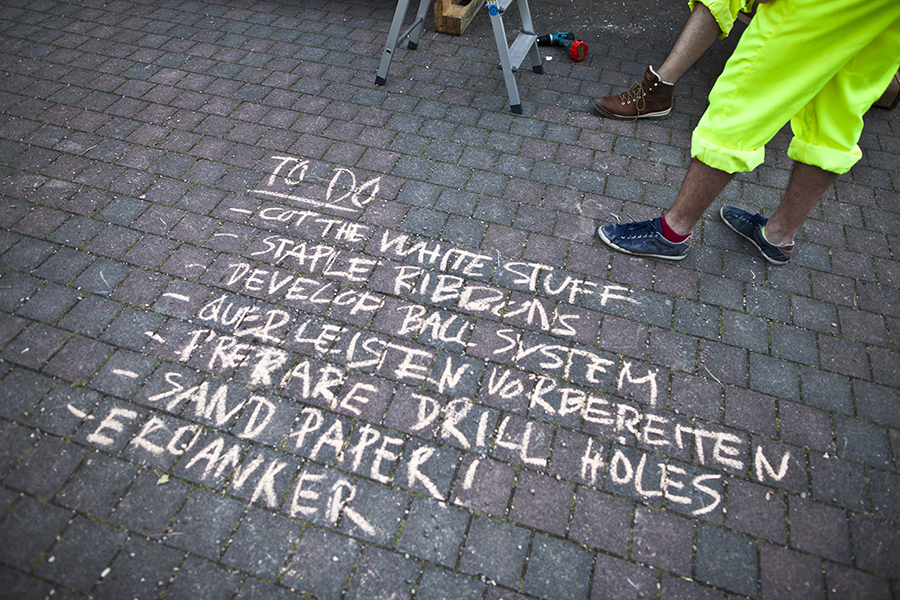 TO DO
- COT THE WHITE STUFF
- STAPLE RIBBONS
DEVELOP BALL SYSTEM
- QUERLEISTEN VORBEREITEN
- PREPARE DRILL HOLES
- SAND PAPER!
- EROANKER